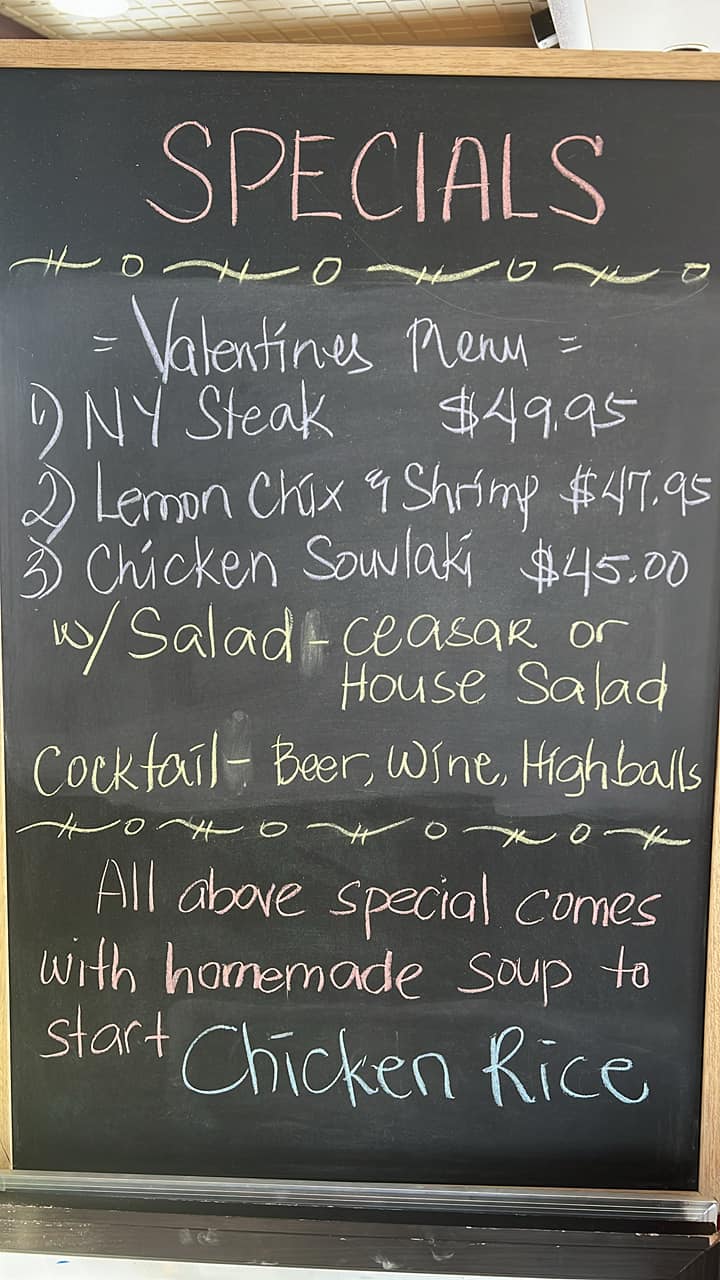 SPECIALS
= Valentines Menu =
1) NY Steak $49.95
2) Lemon Chix & Shrimp $47.95
3) Chicken Souvlaki $45.00
w/ Salad - ceasar or
House Salad
Cocktail - Beer, Wine, Highballs
All above special comes
with homemade soup to
start Chicken Rice